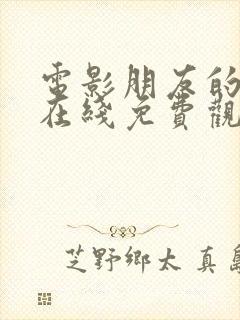 電影朋友的
在綫免費觀
芝野鄉太 真島